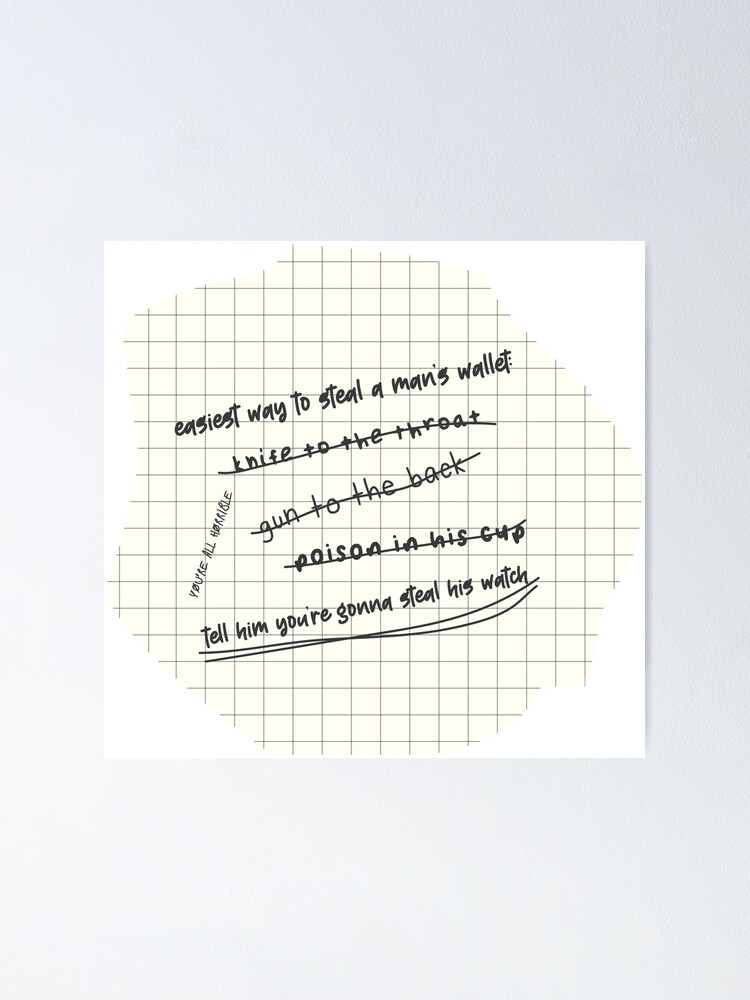 easiest way to steal a man's wallet:
knife to the throat
gun to the back
poison in his cup
tell him you're gonna steal his watch
YOU'RE ALL HORRIBLE